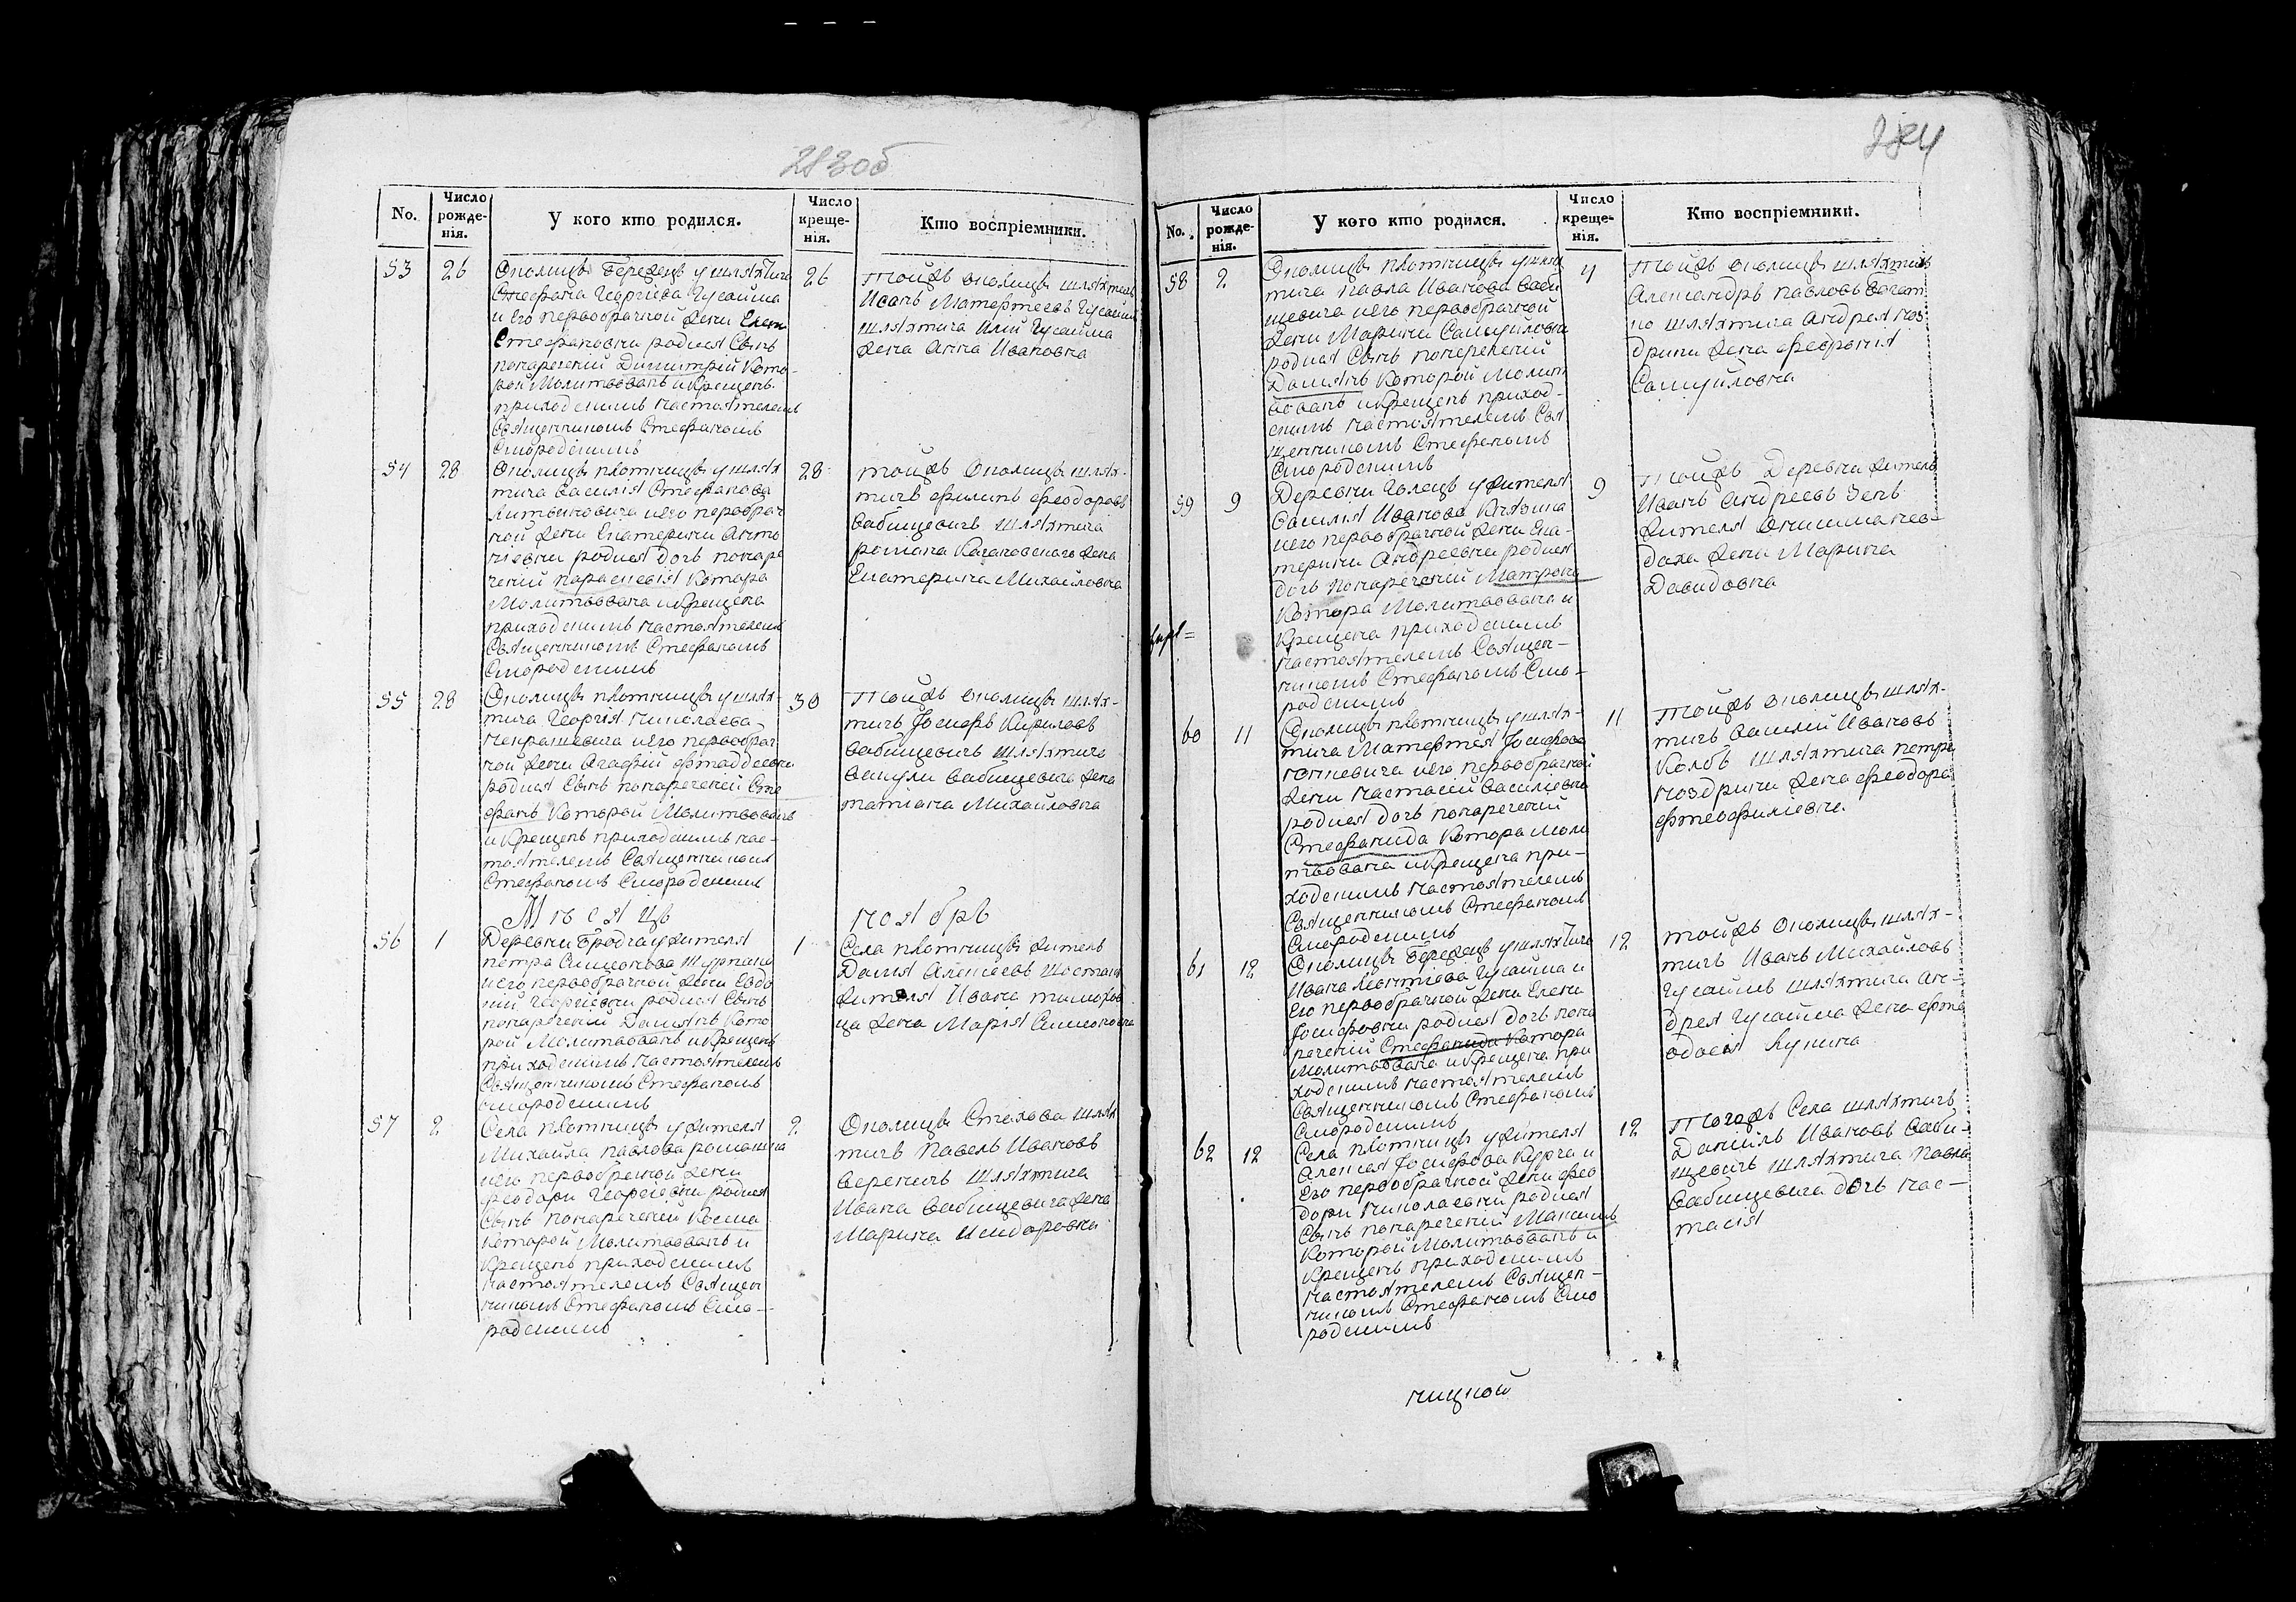 283об
No.
Число рожде-нія.
У кого кто родился.
Число креще-нія.
Кто воспріемники.
53 26 Околицы Бережцъ у шляхтича 26
Стефана Георгіева Гусаима
и его первобрачной жени Елены
Стефановни родися Сынъ
понареченій Димитрій Кото-
рой Молитвованъ и Крещенъ
приходскимъ настоятелемъ
Священникомъ Стефаномъ
Смородскимъ
Тойжъ околицы шляхтичъ
Иванъ Матфтеевъ Гусаимъ
шляхтича Иліи Гусаима
жена Анна Ивановна
54 28 Околицы плотницы у шлях 28
тича Василія Стефанова
Литвиновича и его первобрач
ной жени Екатерини Анто
ніевни родися дочь понаре
ченій параскевія Котора
Молитвована и Крещена
приходскимъ настоятелемъ
Священникомъ Стефаномъ
Смородскимъ
тойжъ Околицы шлях-
тичъ филипъ феодоровъ
Бабищевичъ шляхтича
романа Качановского жена
Екатерина Михайловна
55 28 Околицы плотницы у шлях- 30
тича Георгія николаева
некрашевича и его первобрач
ной жени Агафіи фтаддеевни
родися Сынъ понареченій Сте
фанъ Которой Молитвованъ
и Крещенъ приходскимъ нас-
тоятелемъ Священникомъ
Стефаномъ Смородскимъ
Тойжъ околицы шлях-
тичъ Іосифъ Кириловъ
Бабищевичъ шляхтича
Вакули Бабищевича жена
татіана Михайловна
Мѣсяцъ ноябръ
56 1 Деревни Бродча у жителя 1
петра Симонова Шурпача
и его первобрачной жени Евдо
кіи Георгіевни родися Сынъ
понареченій Даміянъ Кото
рой Молитвованъ и Крещенъ
приходскимъ настоятелемъ
Священникомъ Стефаномъ
смородскимъ
Села плотницы житель
Даміян Алексеевъ Шостакъ
жителя Ивана тимофов
ца жена Марія Симоновна
57 2 Села плотницы у жителя 2
Михайла павлова романича
и его первобрачной жени
феодори Георгіевни родися
Сынъ понареченій Косма
Которой Молитвованъ и
Крещенъ приходскимъ
настоятелемъ Священ
никомъ Стефаномъ Смо-
родскимъ
Околицы Стахова шлях
тичъ Павелъ Ивановъ
вереничъ шляхтича
Ивана Бабищевича жена
Марина Исидоровна
284
No.
Число рожде-нія.
У кого кто родился.
Число креще-нія.
Кто воспріемники.
58 2 Околицы плотницы у шлях 4
тича павла Иванова Баби
щевича и его первобрачной
жени Марини Самуйловни
родися Сынъ понереченій
Даміянъ Которой Молит
вованъ и Крещенъ приход-
скимъ настоятелемъ Свя
щенникомъ Стефаномъ
Смородскимъ
Тойжъ околицы шляхтичъ
Александръ павловъ Богат
ко шляхтича Андрея Ноз-
дрини жена феврония
Самуйловна
59 9 Деревни Голецъ у жителя 9
Василія Иванова
и его первобрачной жени Ека-
терини Андреевни родися
дочь понареченій Матрона
Котора Молитвована и
Крещена приходскимъ
настоятелемъ Священ-
никомъ Стефаномъ Смо-
родскимъ
Тойжъ Деревни житель
Иванъ Андреевъ Зенъ
жителя Онисима нев-
даха жени Марина
Давидовна
60 11 Околицы плотницы у шлях- 11
тича Матфтея Іосифова
и его первобрачной
жени Настасіи Василіевни
родися дочь понареченій
Стефанида Котора моли
твована и Крещена при-
ходскимъ настоятелемъ
Священникомъ Стефаномъ
Смородскимъ
Тойжъ околицы шлях-
тичъ Василій Ивановъ
Колбъ шляхтича петра
ноздрини жена феодора
фтеофиліевна
61 12 Околицы Бережцъ у шляхтича 12
Ивана Леонтіева Гусаима и
Его первобрачной жени Елени
Іосифовни родися дочь пона
реченій Стефанида Котора
Молитвована и Крещена при
ходскимъ настоятелемъ
Священникомъ Стефаномъ
Смородскимъ
тойжъ Околицы шлях-
тичъ Иванъ Михайловъ
Гусаимъ шляхтича Ан-
дрея Гусаима жена фте
одосія Лукина
62 12 Села плотницъ у жителя 12
Алексея Іосифова Курча и
Его первобрачной жени фео
дори николаевни родися
Сынъ понареченій Максимъ
Которой Молитвованъ и
Крещенъ приходскимъ
настоятелемъ Священ-
никомъ Стефаномъ Смо
родскимъ
Тогожъ Села шляхтичъ
Даніилъ Ивановъ Баби-
щевичъ шляхтича павла
Бабищевича дочь нас-
тасія
ницкой